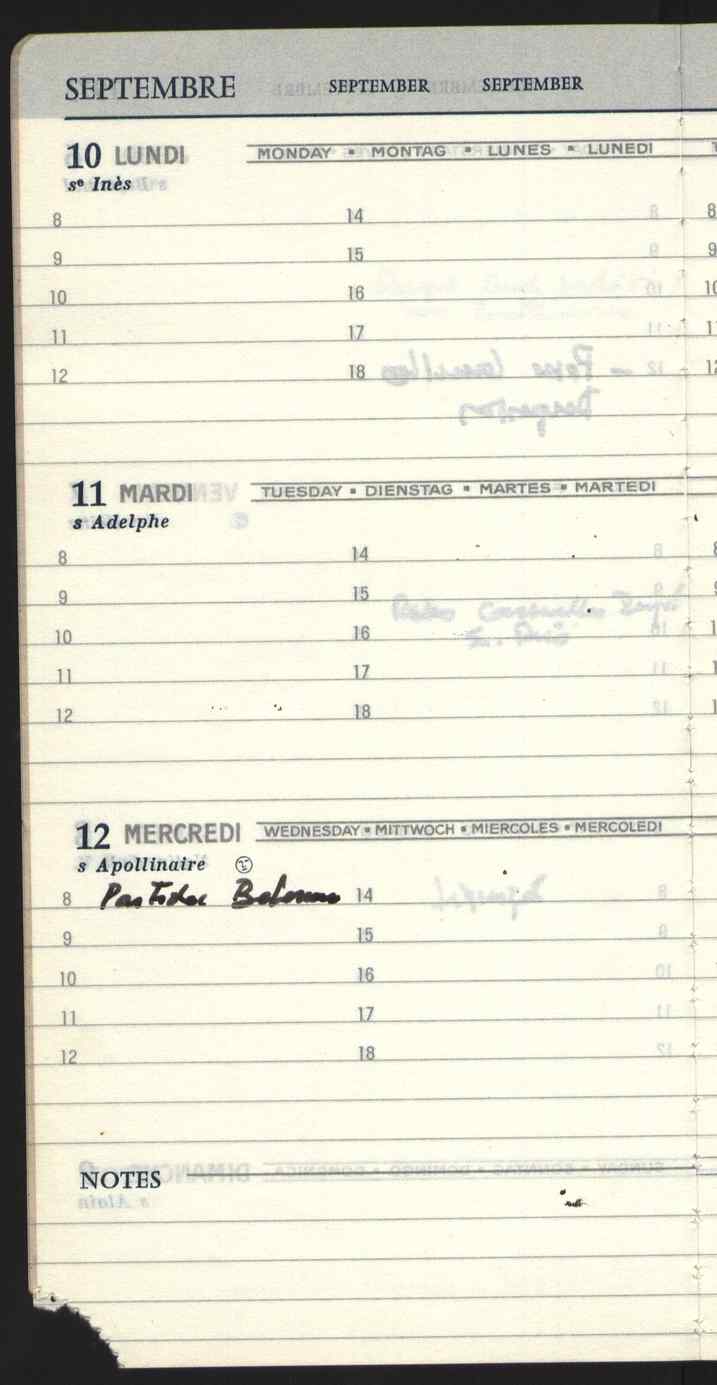 SEPTEMBRE SEPTEMBER SEPTEMBER
10 LUNDI MONDAY • MONTAG • LUNES • LUNEDI
sᵉ Inès
8 14
9 15
10 16
11 17
12 18
11 MARDI TUESDAY • DIENSTAG • MARTES • MARTEDI
s Adelphe
8 14
9 15
10 16
11 17
12 18
12 MERCREDI WEDNESDAY • MITTWOCH • MIERCOLES • MERCOLEDI
s Apollinaire
8 14
9 15
10 16
11 17
12 18
NOTES